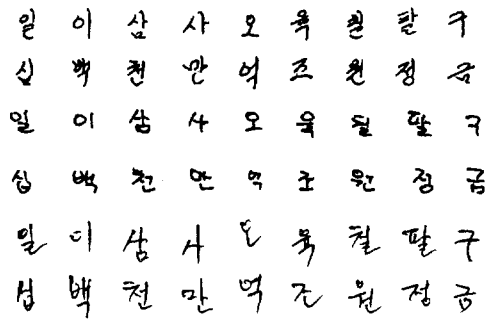 일 이 삼 사 오 육 칠 팔 구
십 백 천 만 억 조 원 정 금
일 이 삼 사 오 육 칠 팔 구
십 백 천 만 억 조 원 정 금
일 이 삼 사 오 육 칠 팔 구
십 백 천 만 억 조 원 정 금